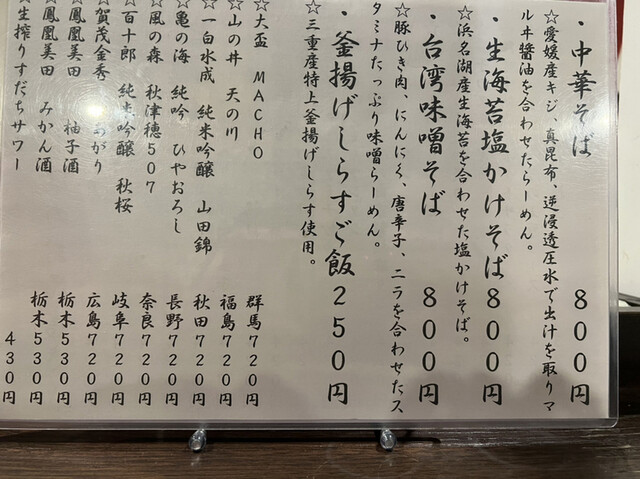 ・中華そば 800円
☆愛媛産キジ、真昆布、逆浸透圧水で出汁を取りマ
ルヰ醤油を合わせたらーめん。
・生海苔塩かけそば800円
☆浜名湖産生海苔を合わせた塩かけそば。
・台湾味噌そば 800円
☆豚ひき肉、にんにく、唐辛子、ニラを合わせたス
タミナたっぷり味噌らーめん。
・釜揚げしらすご飯250円
☆三重産特上釜揚げしらす使用。
☆大盃 MACHO 群馬720円
☆山の井 天の川 福島720円
☆一白水成 純米吟醸 山田錦 秋田720円
☆亀の海 純吟 ひやおろし 長野720円
☆風の森 秋津穂507 奈良720円
☆百十郎 純米吟醸 秋桜 岐阜720円
☆賀茂金秀 あがり 広島720円
☆鳳凰美田 柚子酒 栃木530円
☆鳳凰美田 みかん酒 栃木530円
☆生搾りすだちサワー 430円